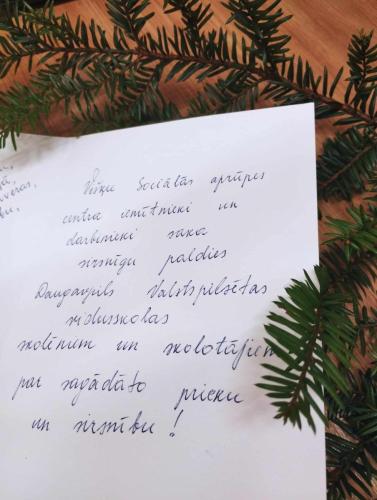 Višķu Sociālās aprūpes
centra iemītnieki un
darbinieki saka
sirsnīgu paldies
Daugavpils Valstspilsētas
vidusskolas
skolēniem un skolotājiem
par sagādāto prieku
un sirsnību!